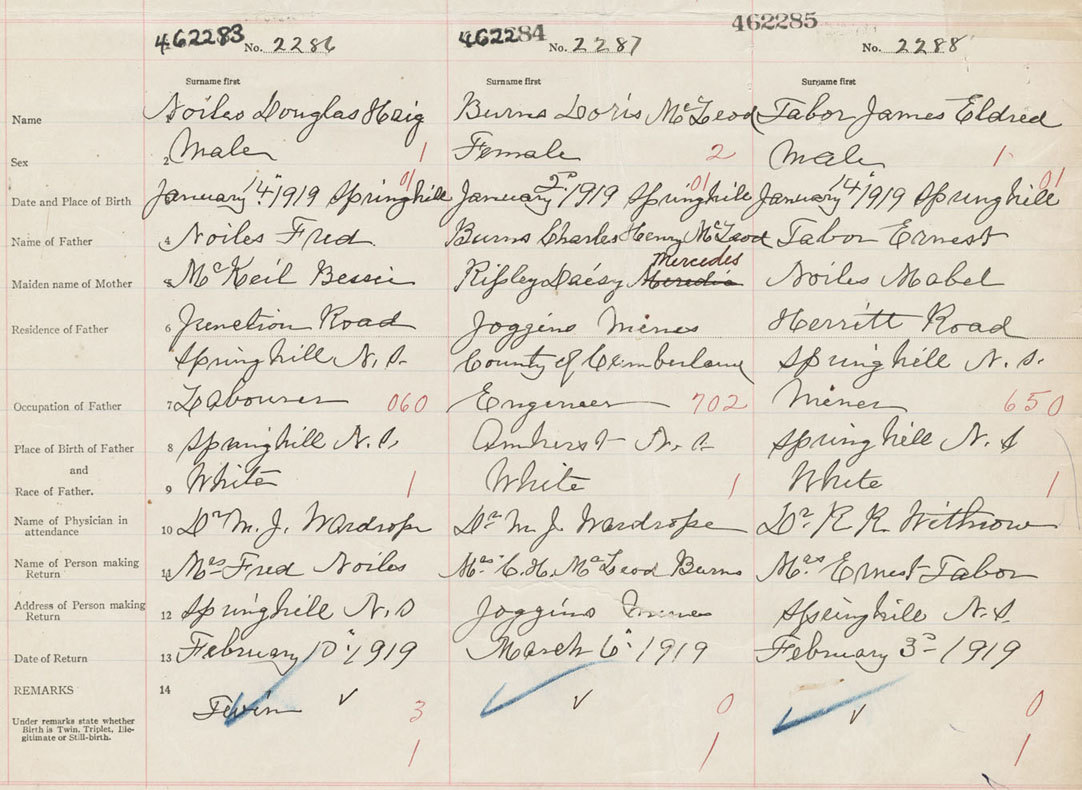 462283 No. 2286 462284 No. 2287 462285 No. 2288
Surname first Surname first Surname first
Name Noiles Douglas Haig Burns Doris McLeod Tabor James Eldred
Sex 2 Male 1 Female 2 Male 1
Date and Place of Birth January 14" 1919 Springhill 01 January 2d 1919 Springhill 01 January 14" 1919 Springhill 01
Name of Father 4 Noiles Fred. Burns Charles Henry McLeod Tabor Ernest
Mercedes
Maiden name of Mother 5 McKeil Bessie Daisy Noiles Mabel
Residence of Father 6 Junction Road Joggins Mines Herritt Road
Springhill N.S. County of Cumberland Springhill N.S.
Occupation of Father 7 Labourer 060 Engineer 702 Miner 650
Place of Birth of Father 8 Springhill N.S. Amherst N.S. Springhill N.S
and
Race of Father. 9 White 1 White 1 White 1
Name of Physician in
attendance 10 Dr M. J. Wardrope Dr M J Wardrope Dr R R Withrow
Name of Person making
Return 11 Mrs Fred Noiles Mrs C. H. McLeod Burns Mrs Ernest Tabor
Address of Person making
Return 12 Springhill N.S Joggins Mines Springhill N.S.
Date of Return 13 February 10" 1919 March 6" 1919 February 3d 1919
REMARKS 14
Twin 3 0 0
Under remarks state whether
Birth is Twin, Triplet, Ille-
gitimate or Still-birth.
1 1 1